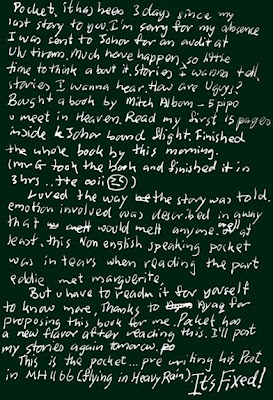 Pocket, it has been 3 days since my
last story to you. I'm sorry for my absence
I was sent to Johor for an audit at
UN Tiram. Much have happen, so little
time to think about it. Stories I wanna tell,
stories I wanna hear. How are Uguys?
Bought a book by Mitch Albom - 5 pipo
u meet in Heaven. Read my first 15 pages
inside k Johor bound flight. Finished
the whole book by this morning.
(mr G took the book and finished it in
3 hrs.. tte ooii)
Loved the way the story was told.
emotion involved was described in away
that would melt anyone. at
least. this Non english speaking pocket
was in tears when reading the part
eddie met marguerite,
But u have to readn it for yorself
to know more, Thanks to Ayag for
proposing this book for me. Pocket has
a new flavor after reading this. I'll post
my stories again tomorow.
This is the pocket... pre writing his Post
in MH1166 (flying in Heavy Rain)
It's Fixed!